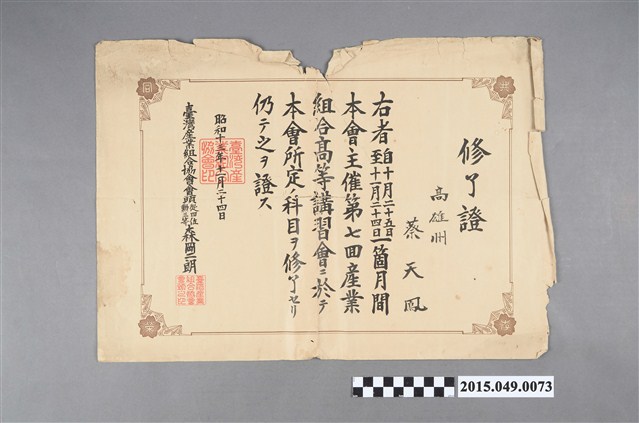 修了證
高雄州
蔡天鳳
右者自十月二十五日至十一月二十四日一箇月間
本會主催第七回産業
組合高等講習會ニ於テ
本會所定ノ科目ヲ修了セリ
仍テ之ヲ證ス
昭和十五年十一月二十四日
臺灣産業組合協會會頭從四位勲三等森岡二朗
2015.049.0073